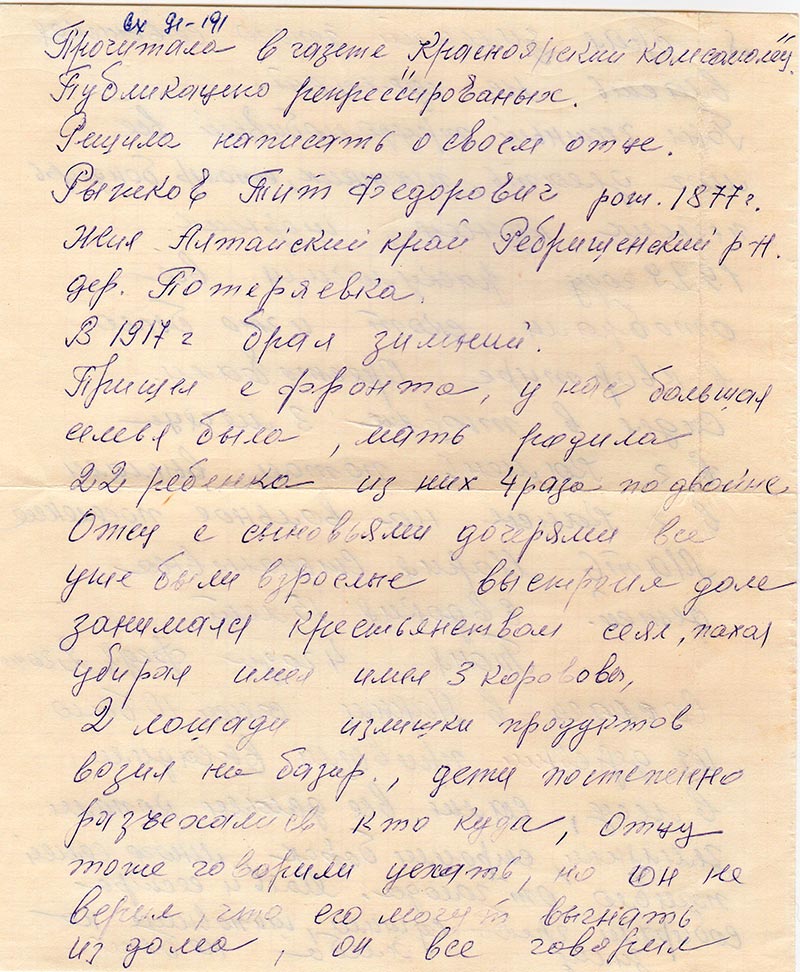 вх 91-191
Прочитала в газете Красноярский комсомолец"
Публикацию репрессированых.
Решила написать о своем отце.
Рыжков Тит Федорович рож. 1877 г.
жил Алтайский край Ребрищенский р-н.
дер. Потеряевка.
В 1917 г брал зимний.
Пришел с фронта, у нас большая
семья была, мать родила
22 ребенка из них 4 раза по двойне
Отец с сыновьями дочерями все
уже были взрослые выстроил дом
занимался крестьянством сеял, пахал
убирал имел имел 3 коровы,
2 лошади излишки продуктов
возил на базар., дети постепенно
разъехались кто куда, отцу
тоже говорили уехать, но он не
верил, что его могут выгнать
из дома, он все говорил